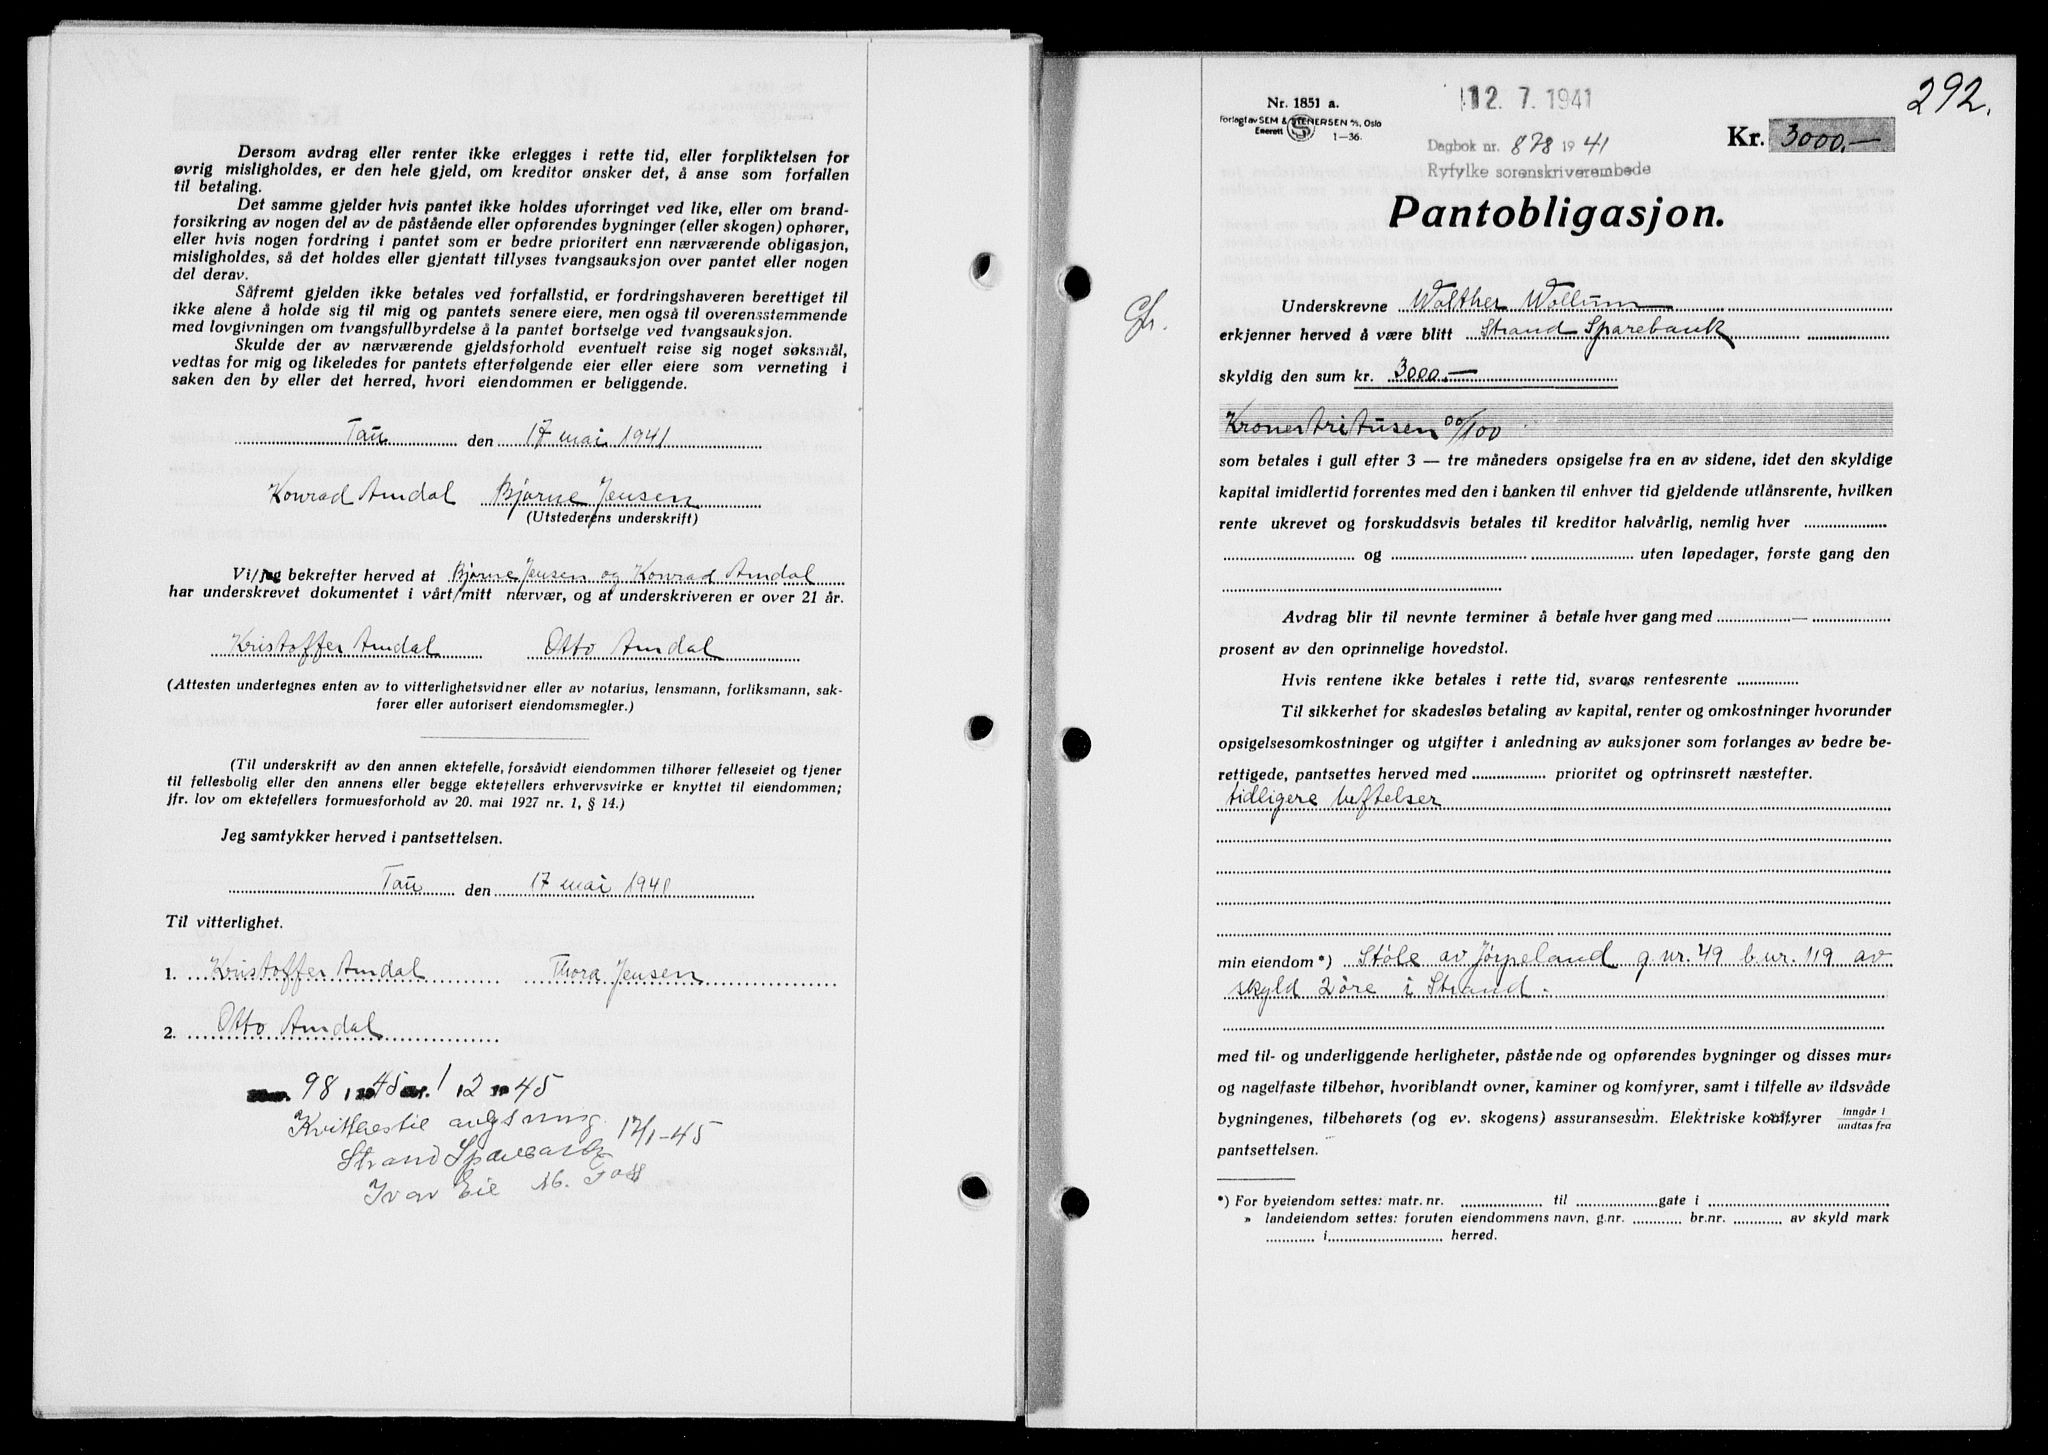 Dersom avdrag eller renter ikke erlegges i rette tid, eller forpliktelsen for
øvrig misligholdes, er den hele gjeld, om kreditor ønsker det, å anse som forfallen
til betaling.
Det samme gjelder hvis pantet ikke holdes uforringet ved like, eller om brand-
forsikring av nogen del av de påstående eller opførendes bygninger (eller skogen) ophører,
eller hvis nogen fordring i pantet som er bedre prioritert enn nærværende obligasjon,
misligholdes, så det holdes eller gjentatt tillyses tvangsauksjon over pantet eller nogen
del derav.
Såfremt gjelden ikke betales ved forfallstid, er fordringshaveren berettiget til
ikke alene å holde sig til mig og pantets senere eiere, men også til overensstemmende
med lovgivningen om tvangsfullbyrdelse å la pantet bortselge ved tvangsauksjon.
Skulde der av nærværende gjeldsforhold eventuelt reise sig noget søksmål,
vedtas for mig og likeledes for pantets efterfølgende eier eller eiere som verneting i
saken den by eller det herred, hvori eiendommen er beliggende.
Tau den 17 mai 1941
Konrad Amdal Bjarne Jensen
(Utstederens underskrift)
Vi/jeg bekrefter herved at Bjarne Jensen og Konrad Amdal
har underskrevet dokumentet i vårt/mitt nærvær, og at underskriveren er over 21 år.
Kristoffer Amdal Otto Amdal
(Attesten undertegnes enten av to vitterlighetsvidner eller av notarius, lensmann, forliksmann, sak-
fører eller autorisert eiendomsmegler.)
(Til underskrift av den annen ektefelle, forsåvidt eiendommen tilhører felleseiet og tjener
til fellesbolig eller den annens eller begge ektefellers erhvervsvirke er knyttet til eiendommen;
jfr. lov om ektefellers formuesforhold av 20. mai 1927 nr. 1, § 14.)
Jeg samtykker herved i pantsettelsen.
Tau den 17 mai 1941
Til vitterlighet.
1. Kristoffer Amdal Thora Jensen
2. Otto Amdal
98 1945 1 12 1945
Kvitteres til avlysning 17/1-45
Strand Sparebank
Ivar Eie M. Foss
292.
Nr. 1851 a.
Forlagt av SEM & STENERSEN A/S, Oslo
Enerett S 1–36.
12. 7. 1941
Dagbok nr. 878 1941
Ryfylke sorenskriverembede
Kr. 3000,—
Pantobligasjon.
Underskrevne Walther Wollum
erkjenner herved å være blitt Strand Sparebank
skyldig den sum kr. 3000.—
Kroner tritusen 00/100
som betales i gull efter 3 — tre måneders opsigelse fra en av sidene, idet den skyldige
kapital imidlertid forrentes med den i banken til enhver tid gjeldende utlånsrente, hvilken
rente ukrevet og forskuddsvis betales til kreditor halvårlig, nemlig hver
og uten løpedager, første gang den
Avdrag blir til nevnte terminer å betale hver gang med —
prosent av den oprinnelige hovedstol.
Hvis rentene ikke betales i rette tid, svares rentesrente
Til sikkerhet for skadesløs betaling av kapital, renter og omkostninger hvorunder
opsigelsesomkostninger og utgifter i anledning av auksjoner som forlanges av bedre be-
rettigede, pantsettes herved med prioritet og optrinsrett næstefter.
tidligere heftelser
min eiendom*) Støle av Jørpeland g.nr. 49 b.nr. 119 av
skyld 2 øre i Strand.
med til- og underliggende herligheter, påstående og opførendes bygninger og disses mur-
og nagelfaste tilbehør, hvoriblandt ovner, kaminer og komfyrer, samt i tilfelle av ildsvåde
bygningenes, tilbehørets (og ev. skogens) assuransesum. Elektriske komfyrer inngår i / undtas fra
pantsettelsen.
*) For byeiendom settes: matr. nr. til gate i
» landeiendom settes: foruten eiendommens navn, g.nr. br.nr. av skyld mark
i herred.